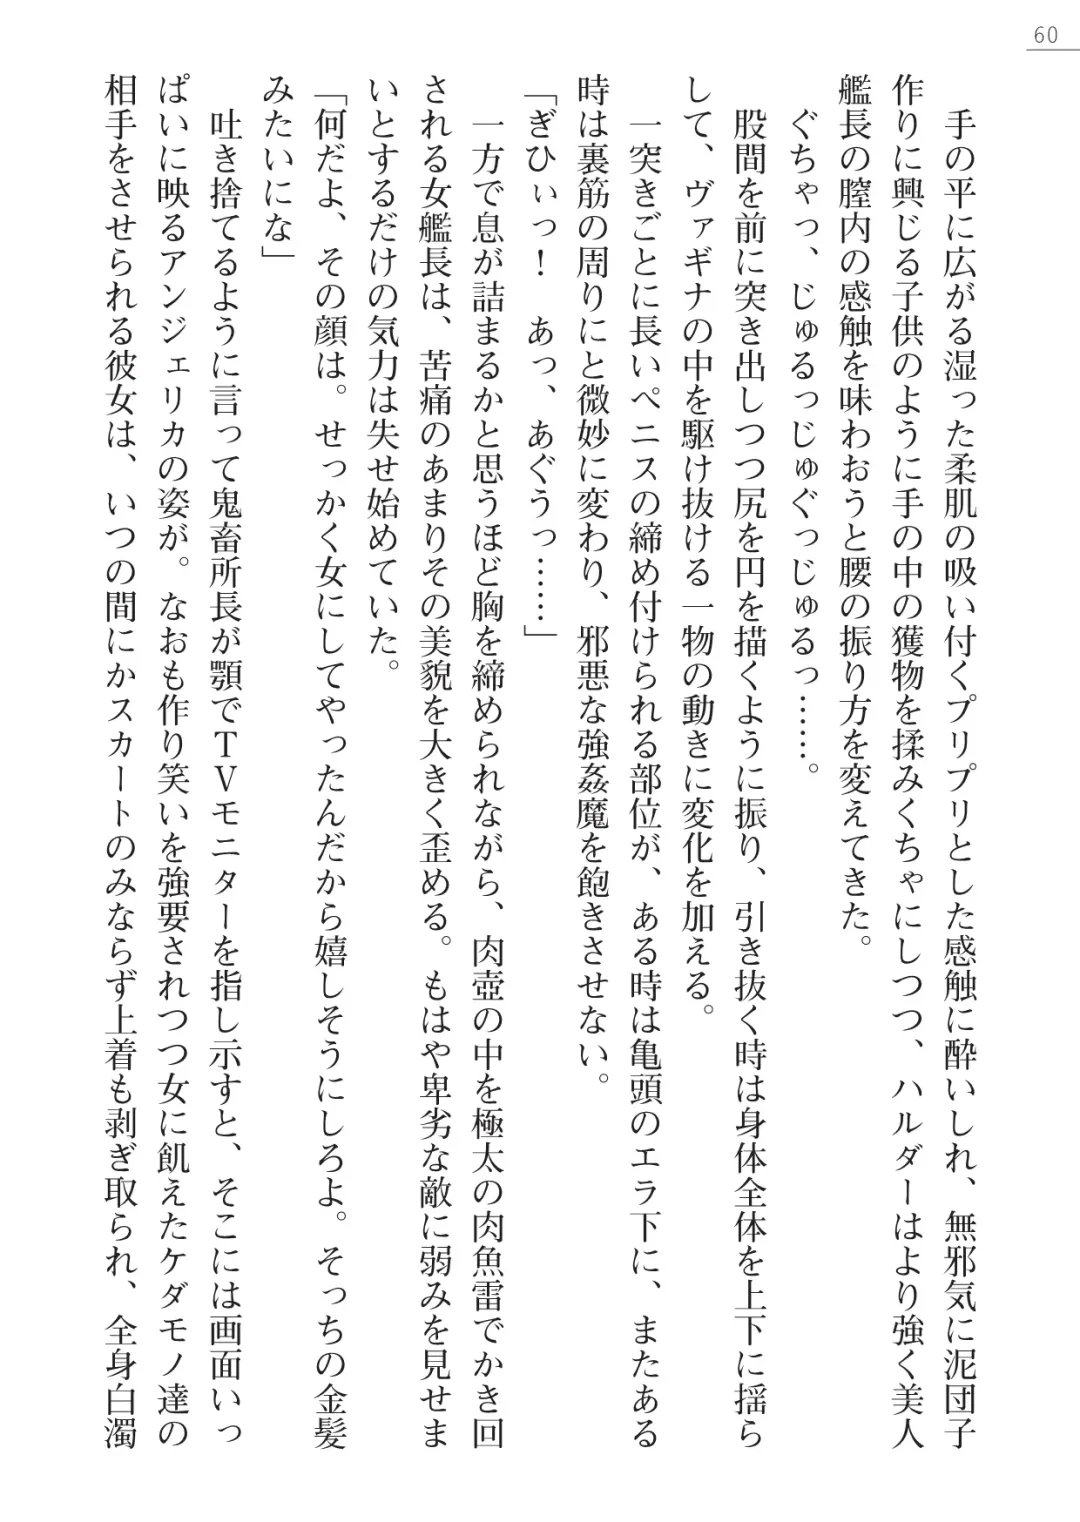 60
手の平に広がる湿った柔肌の吸い付くプリプリとした感触に酔いしれ、無邪気に泥団子
作りに興じる子供のように手の中の獲物を揉みくちゃにしつつ、ハルダーはより強く美人
艦長の膣内の感触を味わおうと腰の振り方を変えてきた。
ぐちゃっ、じゅるっじゅぐっじゅるっ……。
股間を前に突き出しつつ尻を円を描くように振り、引き抜く時は身体全体を上下に揺ら
して、ヴァギナの中を駆け抜ける一物の動きに変化を加える。
一突きごとに長いペニスの締め付けられる部位が、ある時は亀頭のエラ下に、またある
時は裏筋の周りにと微妙に変わり、邪悪な強姦魔を飽きさせない。
「ぎひぃっ！　あっ、あぐうっ……」
一方で息が詰まるかと思うほど胸を締められながら、肉壺の中を極太の肉魚雷でかき回
される女艦長は、苦痛のあまりその美貌を大きく歪める。もはや卑劣な敵に弱みを見せま
いとするだけの気力は失せ始めていた。
「何だよ、その顔は。せっかく女にしてやったんだから嬉しそうにしろよ。そっちの金髪
みたいにな」
吐き捨てるように言って鬼畜所長が顎でＴＶモニターを指し示すと、そこには画面いっ
ぱいに映るアンジェリカの姿が。なおも作り笑いを強要されつつ女に飢えたケダモノ達の
相手をさせられる彼女は、いつの間にかスカートのみならず上着も剥ぎ取られ、全身白濁